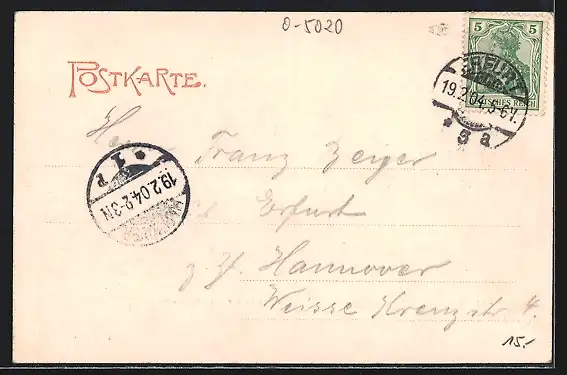 0-5020
5
DEUTSCHES REICH
ERFURT
19.2.04.5-6V.
* 3 a
POSTKARTE.
Franz Zeiger
Erfurt
z. Zt. Hannover
Weisse Kreuzstr 4.
19.2.04.2-3N
HANNOVER
* 1 d
15.-